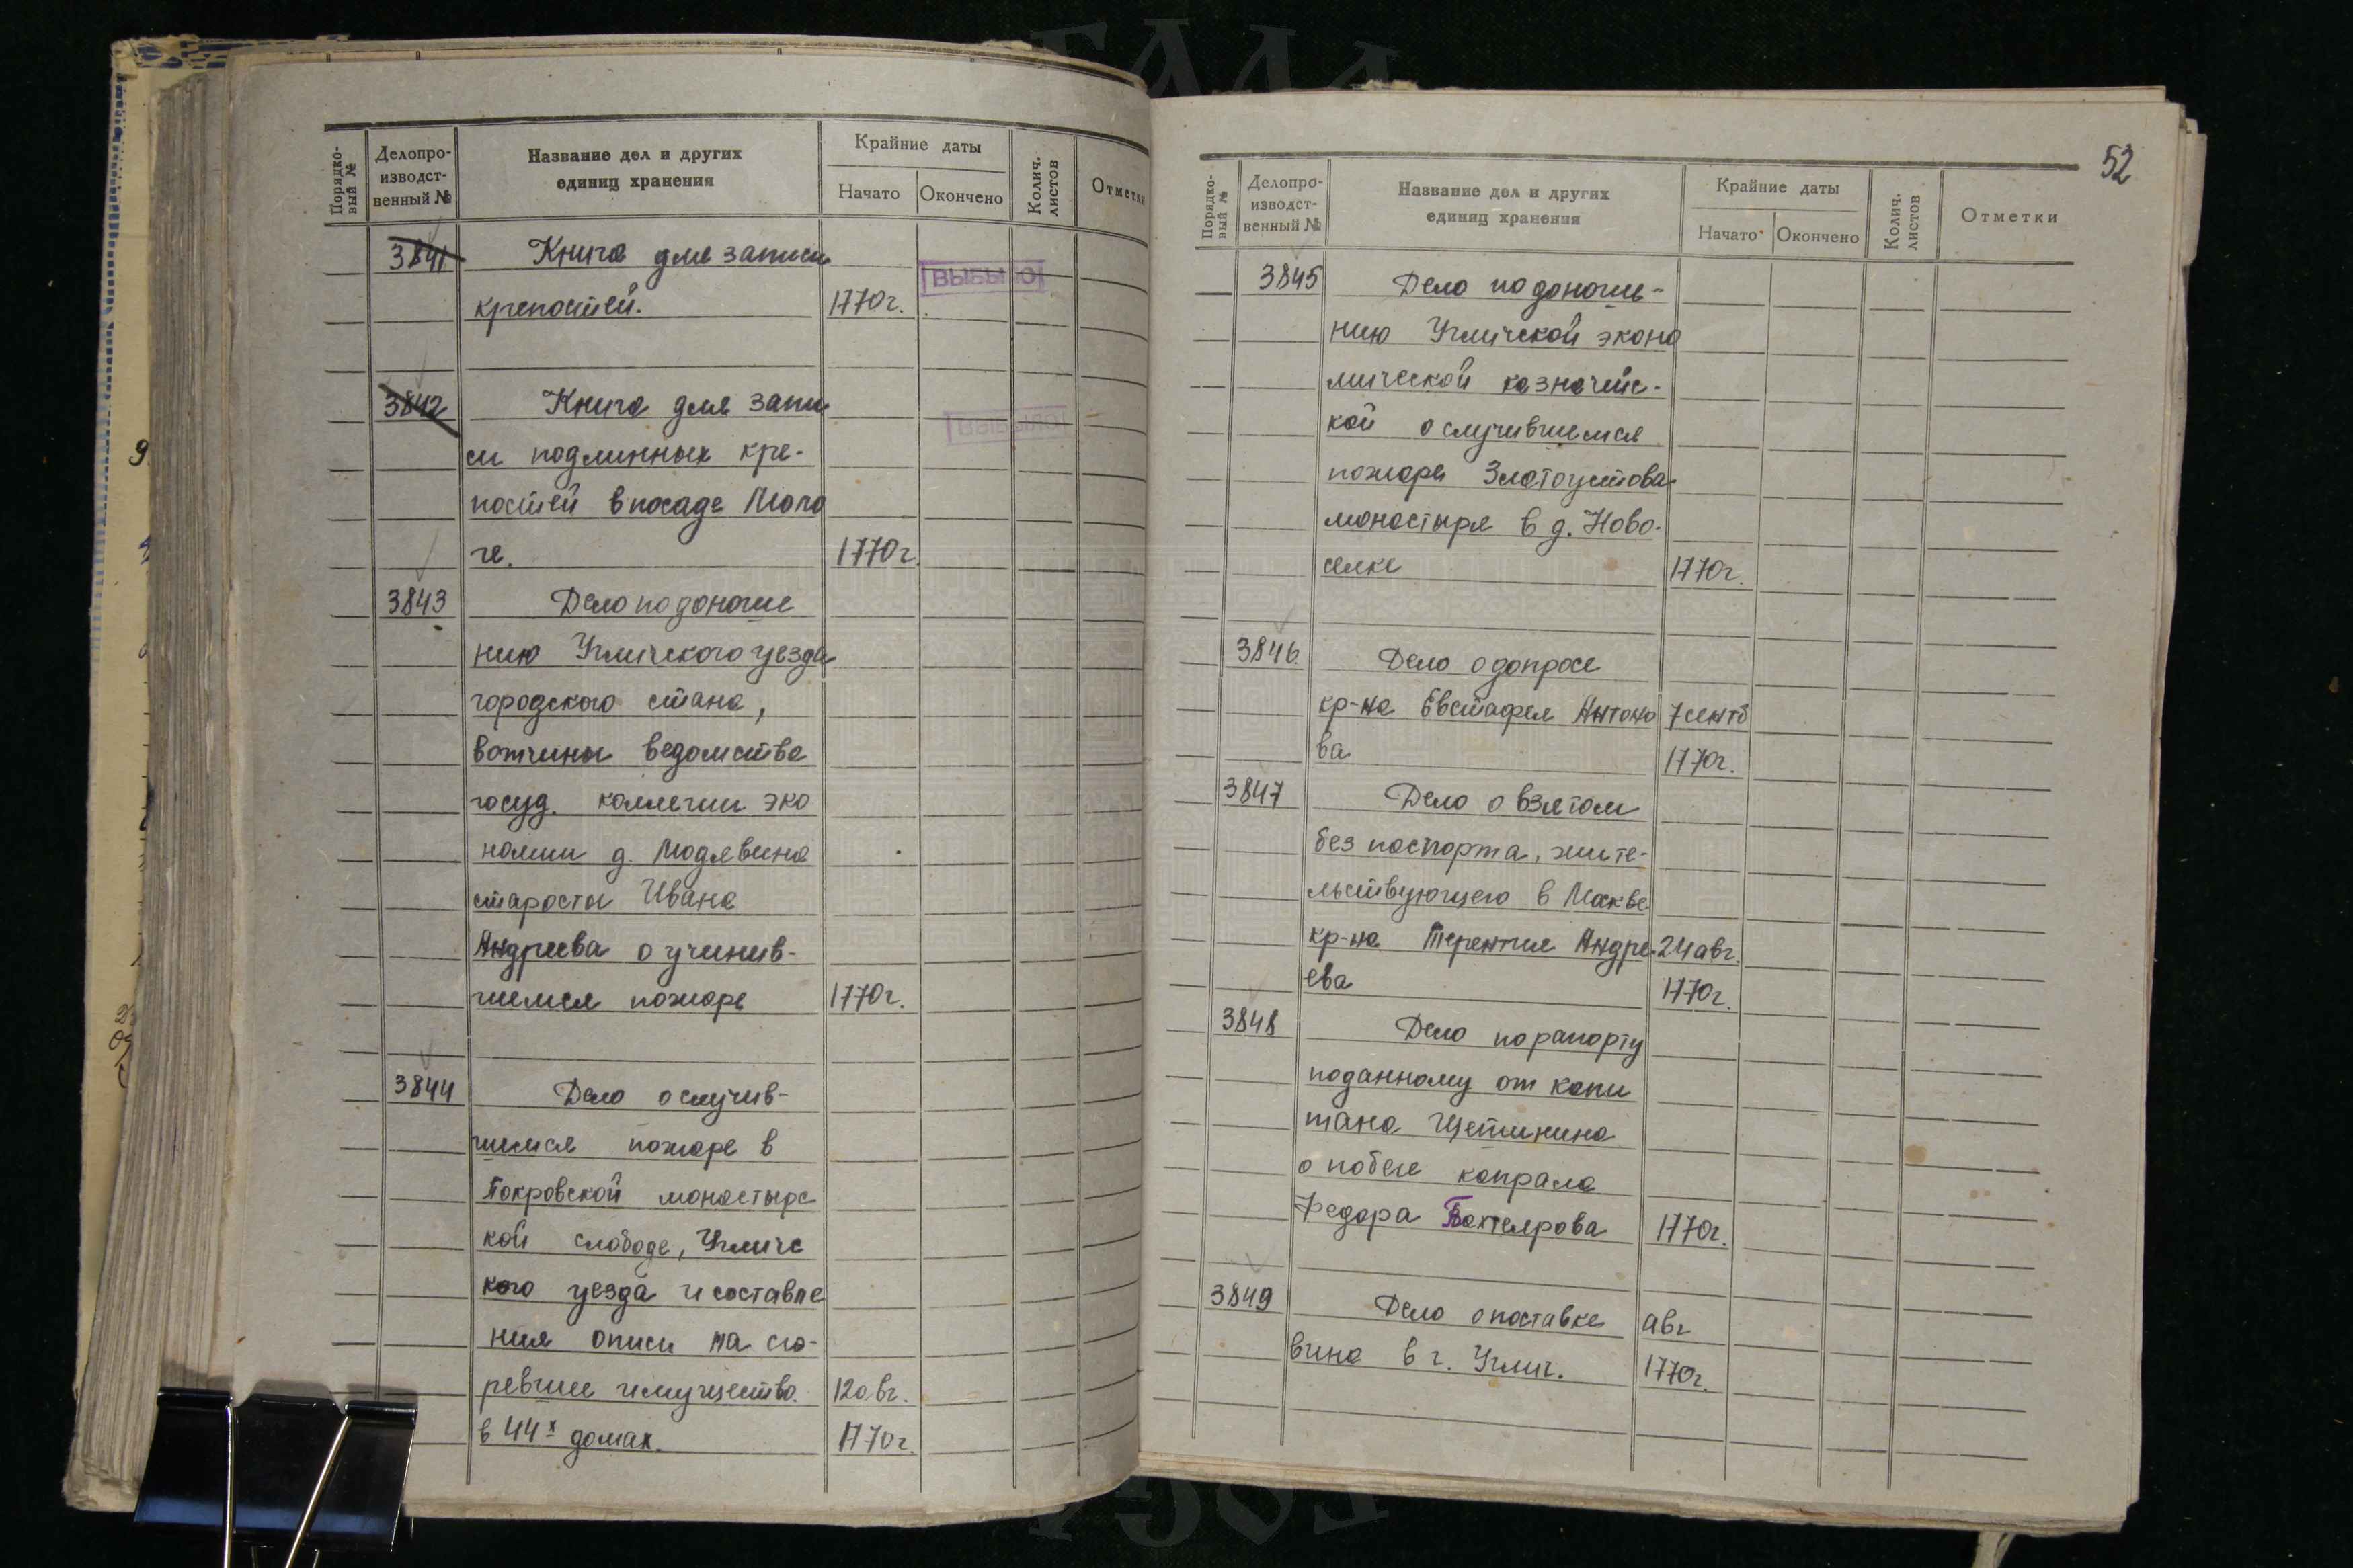 Порядко-
вый №
Делопро-
изводст-
венный №
Название дел и других
единиц хранения
Крайние даты
Начато
Окончено
Колич.
листов
Отметки
3841 Книга для записи
ВЫБЫЛО
крепостей. 1770г.
3842 Книга для запи
ВЫБЫЛО
си подлинных кре-
постей в посаде Моло
ге. 1770г
3843 Дело по доноше
нию Угличского уезда
городского стана,
вотчины ведомства
госуд. коллегии эко
номии д. Модявина
старосты Ивана
Андреева о учинив-
шемся пожаре 1770г.
3844 Дело о случив-
шемся пожаре в
Покровской монастырс
кой слободе, Угличс
кого уезда и составле
ния описи на сго-
ревшее имущество 12 авг.
в 44х домах. 1770г.
52
Порядко-
вый №
Делопро-
изводст-
венный №
Название дел и других
единиц хранения
Крайние даты
Начато
Окончено
Колич.
листов
Отметки
3845 Дело по доноше-
нию Угличской эконо
мической казначейс-
кой о случившемся
пожаре Златоустова
монастыря в д. Ново-
селке 1770г.
3846 Дело о допросе
кр-на Евстафея Антоно 7 сентб
ва 1770г.
3847 Дело о взятом
без паспорта, жите-
льствующего в Москве
кр-на Терентия Андре- 24 авг.
ева 1770г.
3848 Дело по рапорту
поданному от капи
тана Щетинина
о побеге капрала
Федора 1770г.
3849 Дело о поставке авг
вина в г. Углич. 1770г.